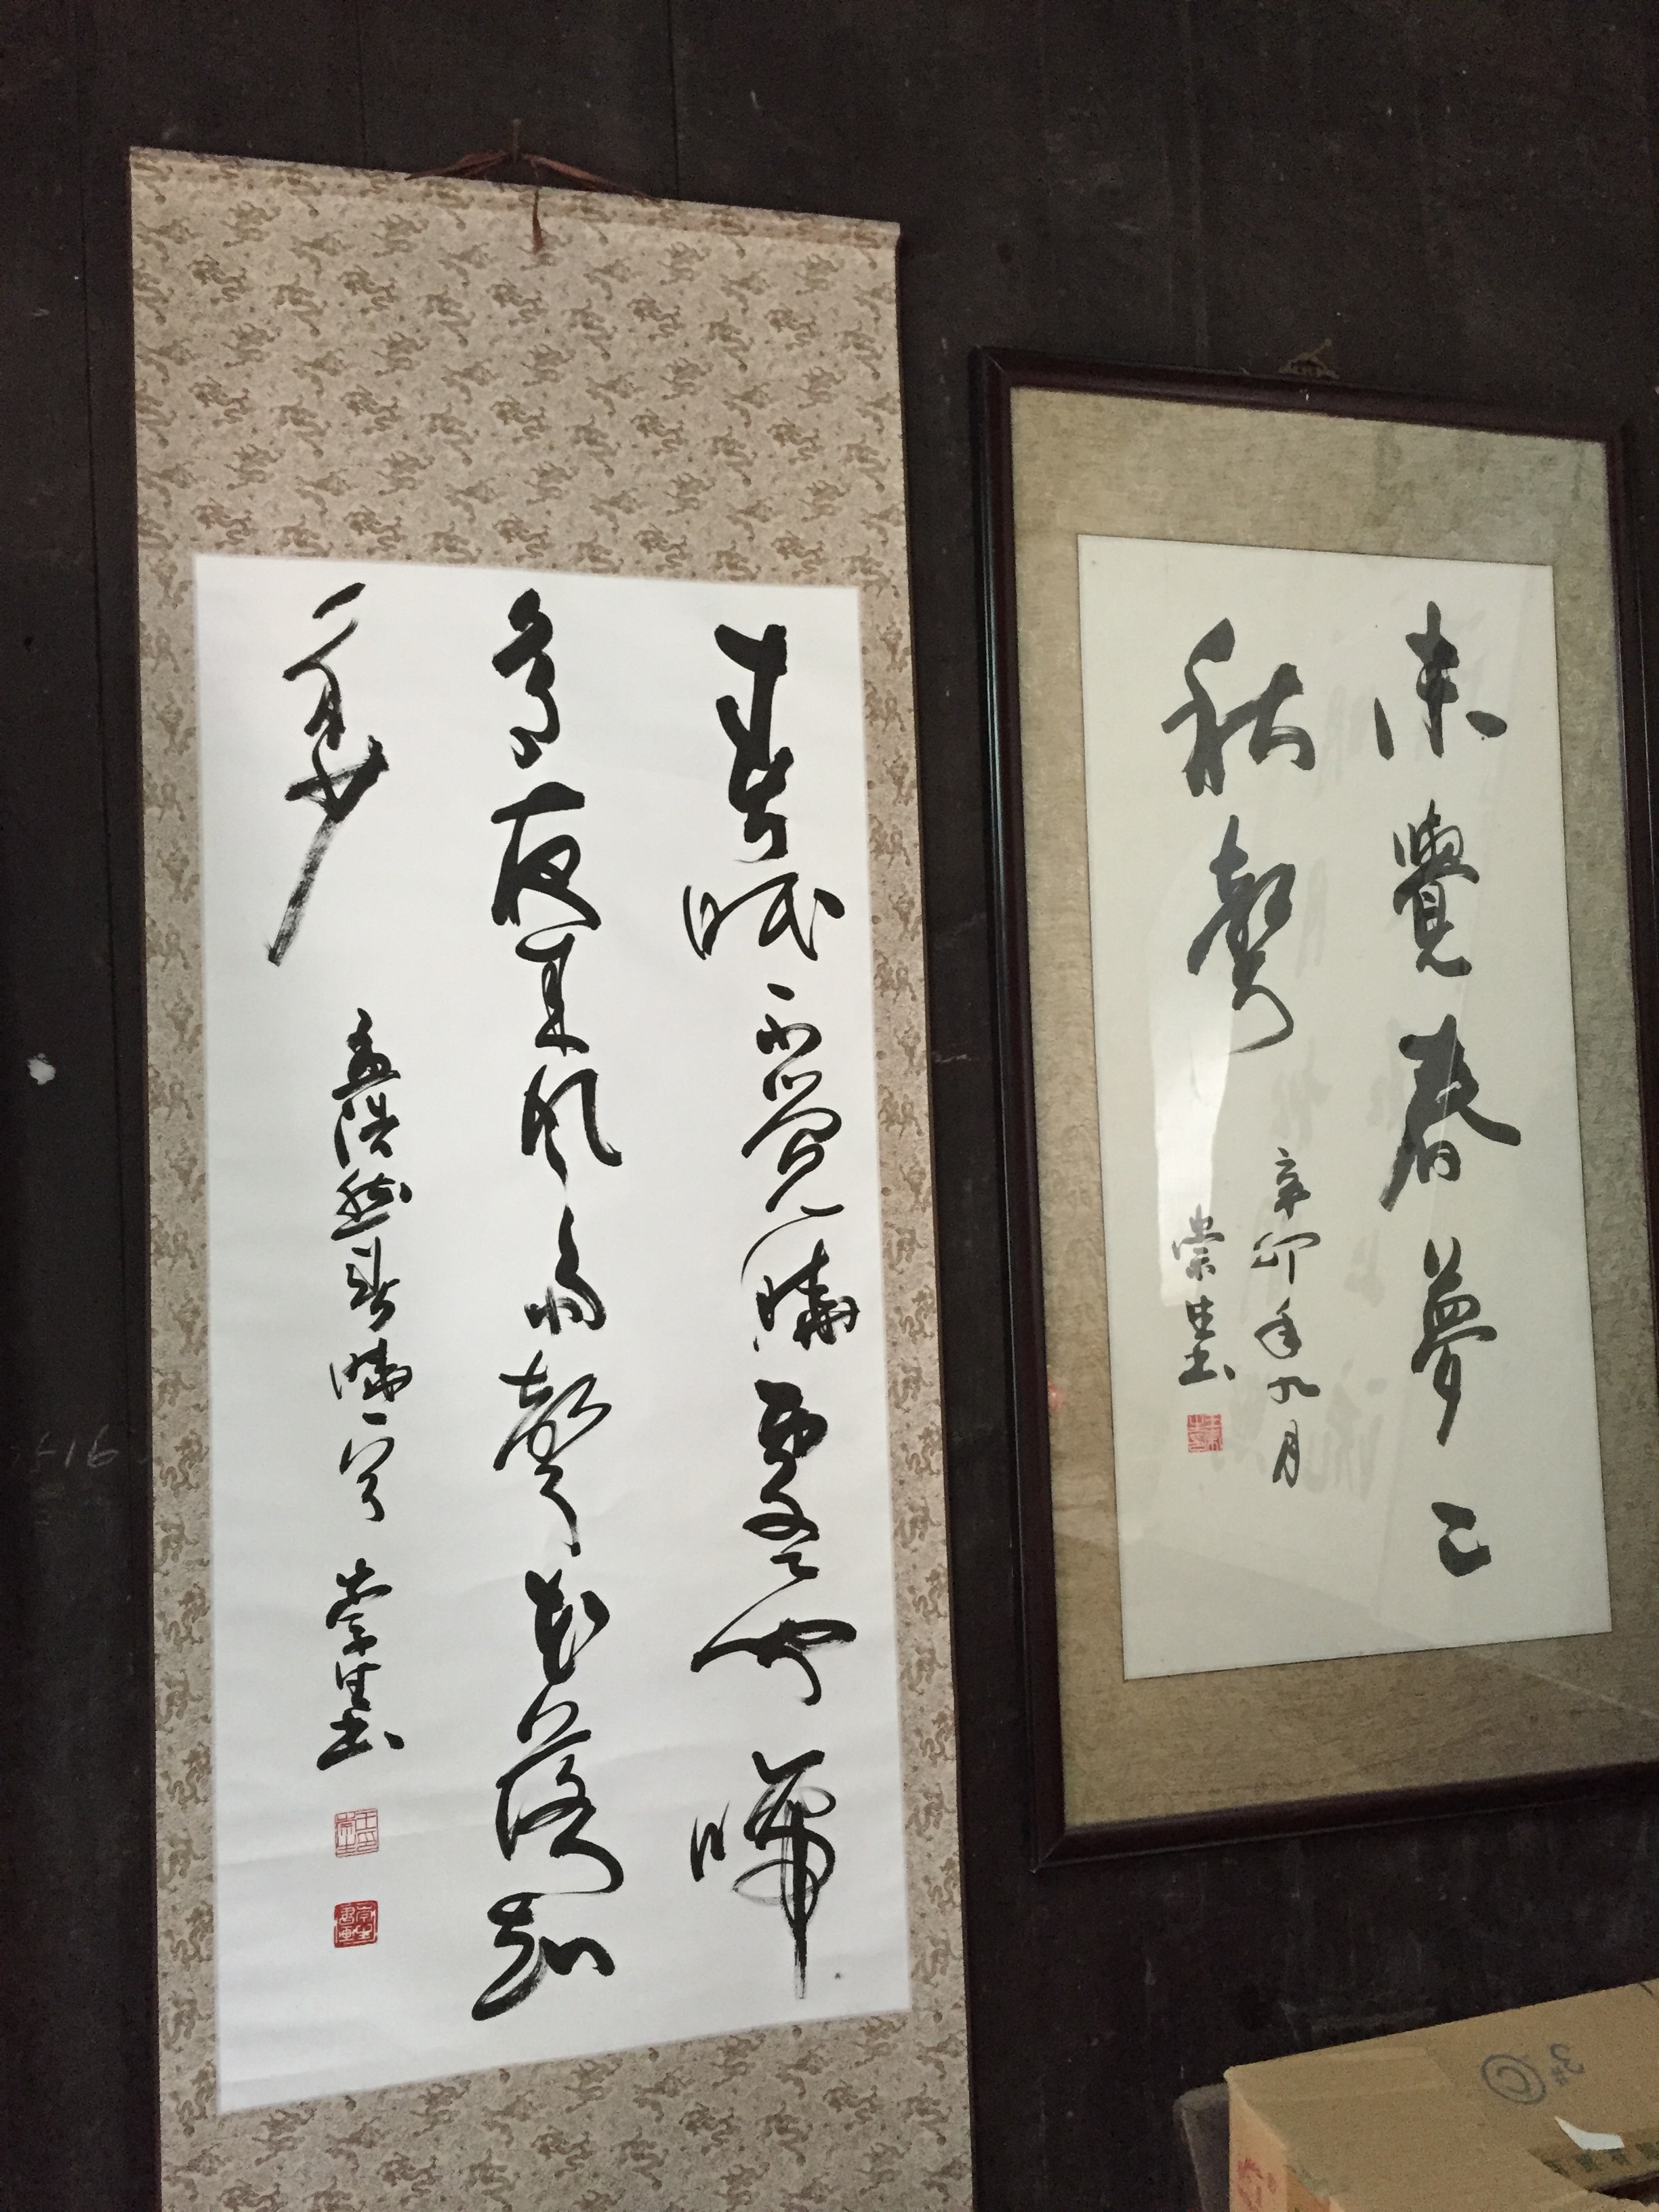 未覺春夢已
秋聲
辛卯年九月
崇生書
春眠不覺曉處處聞啼
鳥夜來風雨聲花落知
多少
孟浩然春曉一首 崇生書